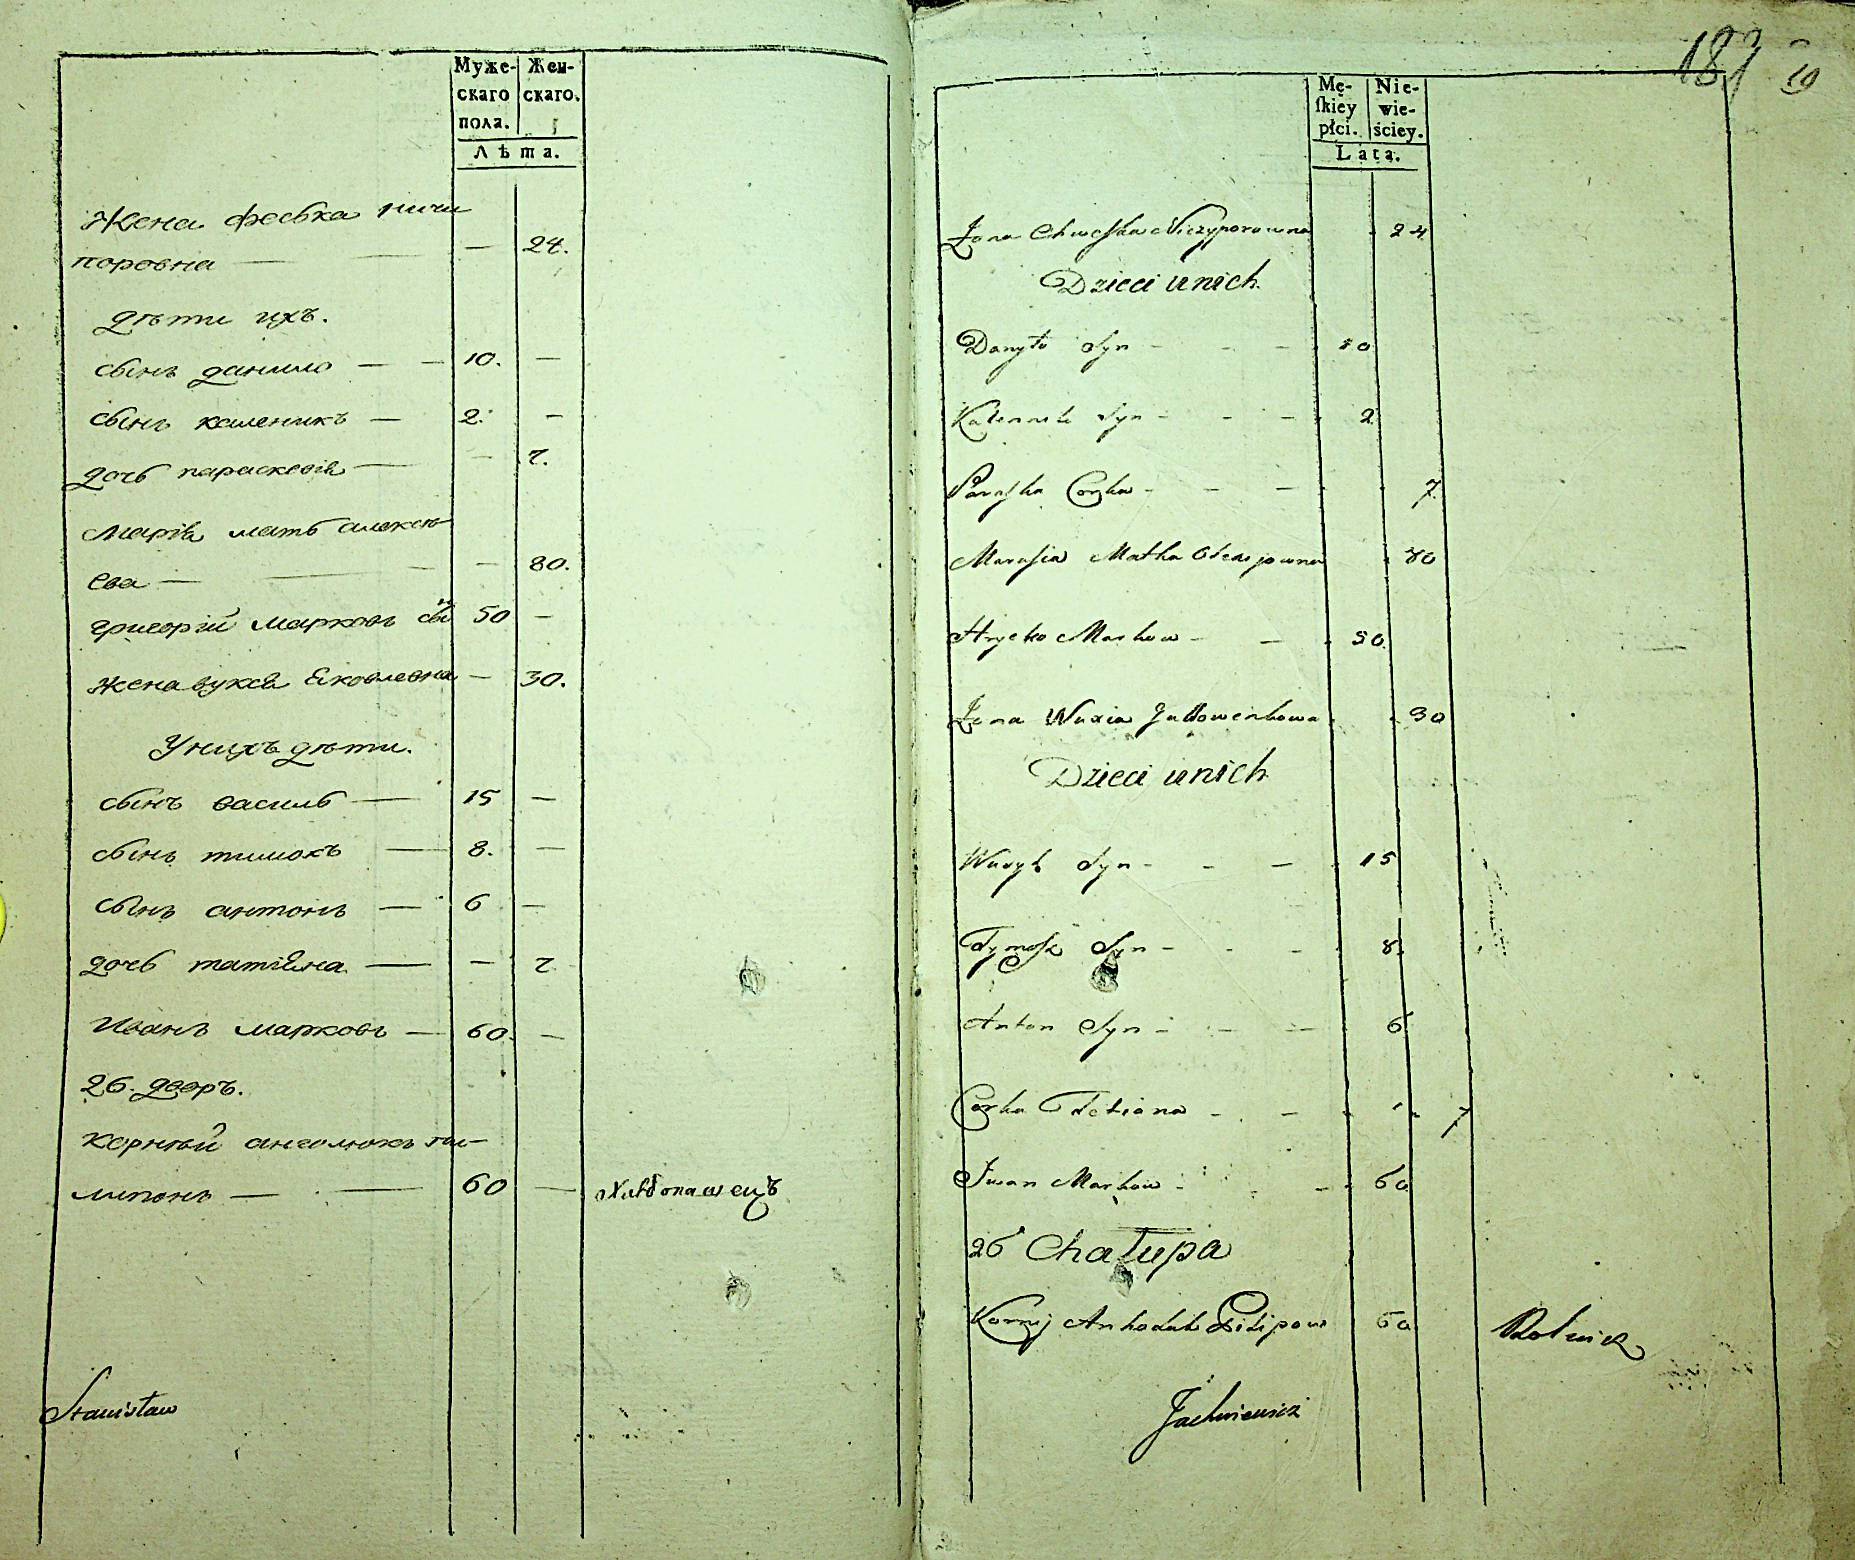 Муже-
скаго
пола.
Жен-
скаго.
Лѣта.
Жена Феська ничи
поровна — — — 24.
дѣти ихъ.
сынъ данило — — 10. —
сынъ каленикъ — 2. —
дочь параскевія — — 7.
Марія мать алексѣ-
ева — — — — 80.
григорій Марковъ сынъ 50 —
жена вуксѣ Яковлевна — 30.
У нихъ дѣти.
сынъ василь — 15 —
сынъ тимохъ — 8. —
сынъ антонъ — 6 —
дочь татіяна — — 7
Иванъ марковъ — 60. —
26. дворъ.
корнѣй анголюкъ пи-
липовъ — — 60 — Хлѣбопашецъ
Stanisław
183
10
Mę-
skiey
płci.
Nie-
wie-
ściey.
Lata.
Żona Chweska Niczyporowna 24
Dzieci u nich
Danyło Syn - - - 10
Kalennik Syn - - - 2
Paraska Corka - - - 7
Marusia Matka Olexiejowna 80
Hrycko Markow - - 50
Żona Wuxia 30
Dzieci u nich
Wasyl Syn - - - 15
Tymosz Syn - - - 8
Anton Syn - - - 6
Corka Tatiana - - - 7
Iwan Markow - - - 60
26 Chałupa
Kornij Pilipow 60 Rolnick
Jachniewicz